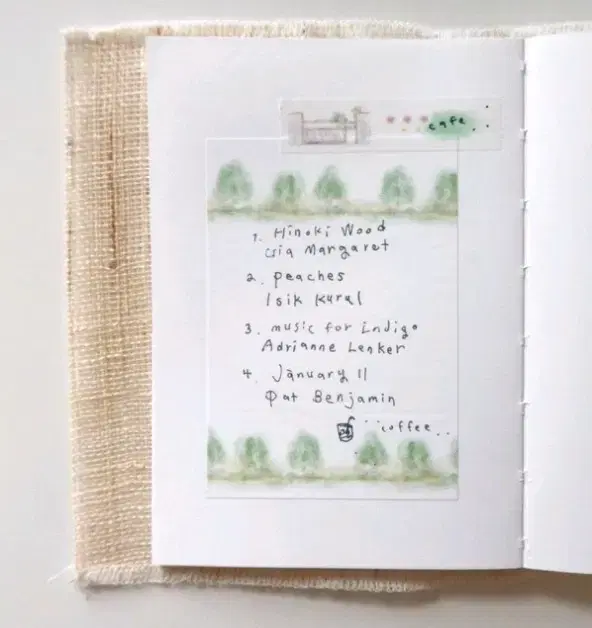 cafe
1. Hinoki Wood
Gia Margaret
2. peaches
Isik Kural
3. music for indigo
Adrianne Lenker
4. January 11
Pat Benjamin
coffee..